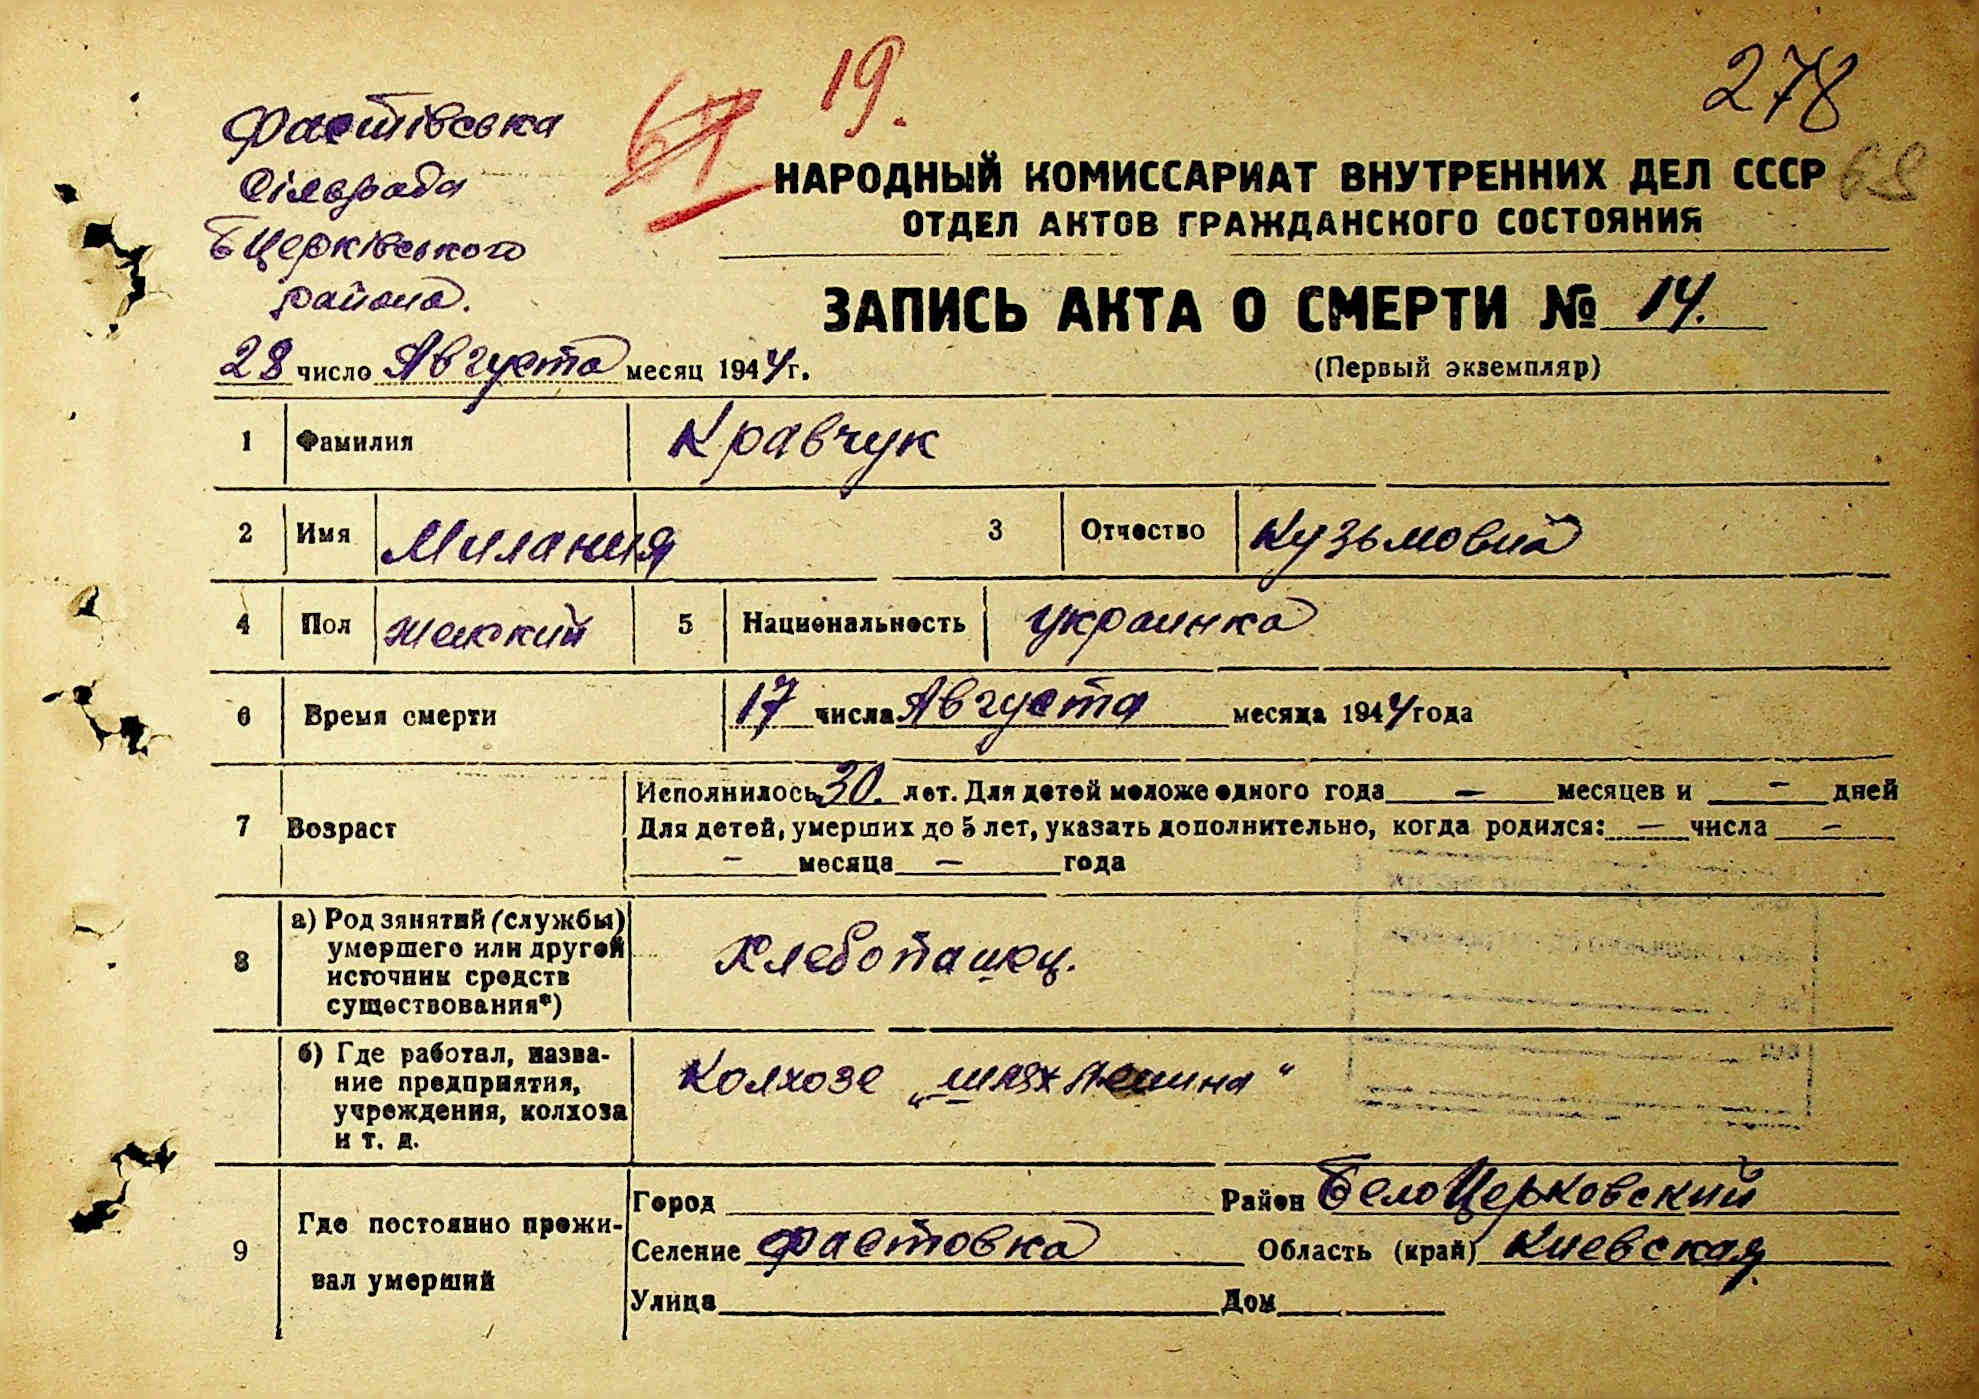 19.
278
Фастівська
сільрада
БЦерківського
района.
67
68
НАРОДНЫЙ КОМИССАРИАТ ВНУТРЕННИХ ДЕЛ СССР
ОТДЕЛ АКТОВ ГРАЖДАНСКОГО СОСТОЯНИЯ
ЗАПИСЬ АКТА О СМЕРТИ № 14.
28 число Августа месяц 1944 г.
(Первый экземпляр)
1 Фамилия Кравчук
2 Имя Милания 3 Отчество Кузьмовна
4 Пол женский 5 Национальность украинка
6 Время смерти 17 числа Августа месяца 1944 года
Исполнилось 30. лет. Для детей моложе одного года — месяцев и — дней
7 Возраст Для детей, умерших до 5 лет, указать дополнительно, когда родился: — числа —
— месяца — года
8 а) Род занятий (службы)
умершего или другой
источник средств
существования*)
Хлебопашец.
б) Где работал, назва-
ние предприятия,
учреждения, колхоза
и т. д.
Колхозе „шлях Ленина“
9 Где постоянно прожи-
вал умерший
Город Район БелоЦерковский
Селение Фастовка Область (край) Киевская
Улица Дом